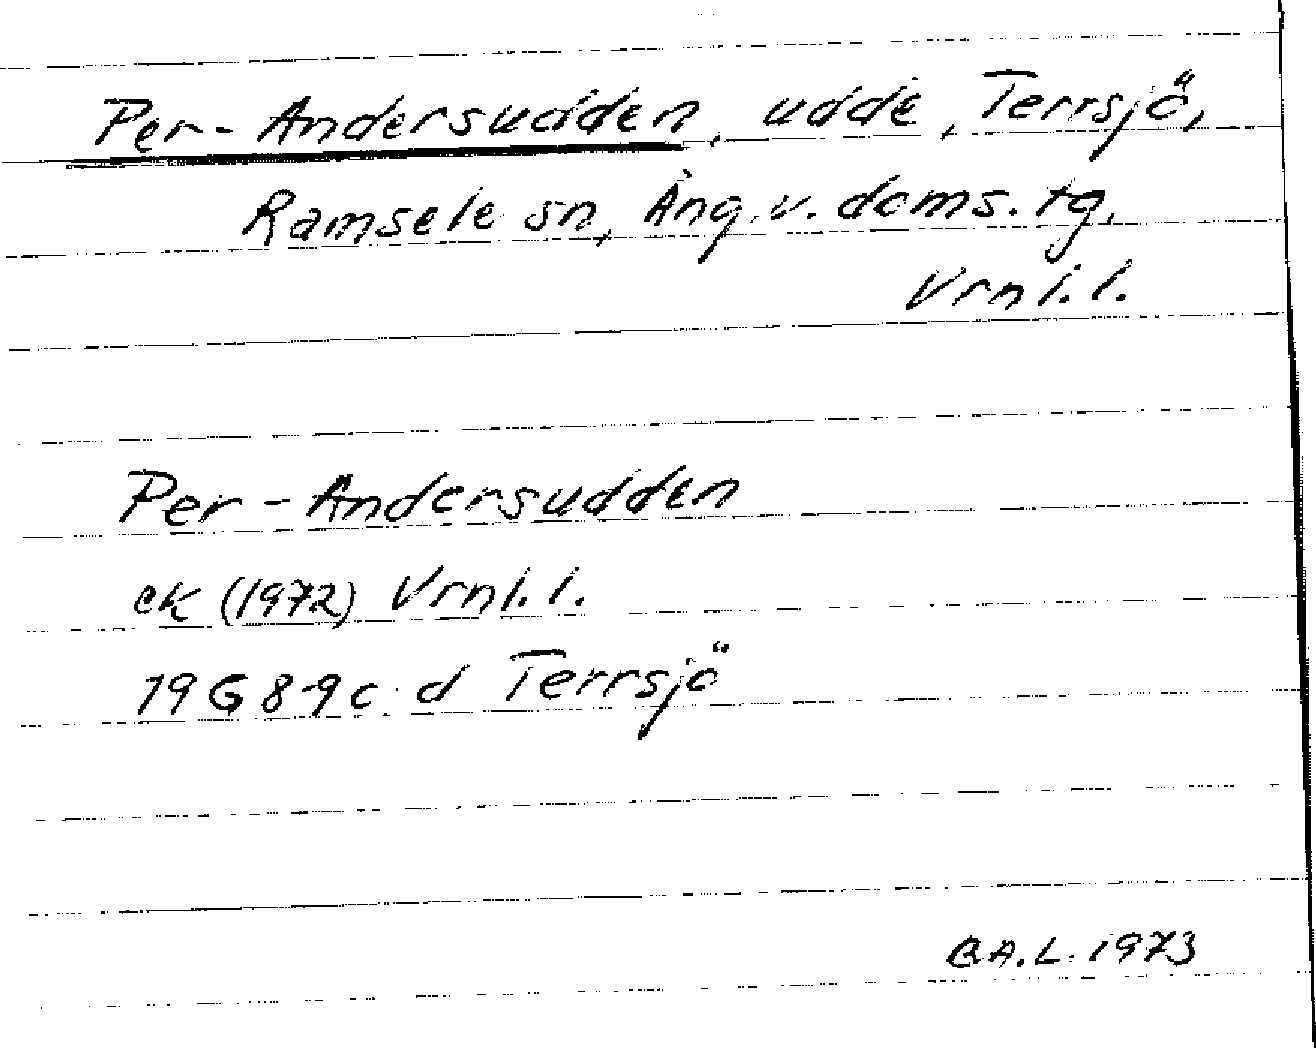 Per-Andersudden, udde, Terrsjö,
Ramsele sn, Ång.v. doms. tg,
Vrnl.l.
Per-Andersudden
ek (1972) Vrnl.l.
19 G 8-9 c. d Terrsjö
A.L. 1973